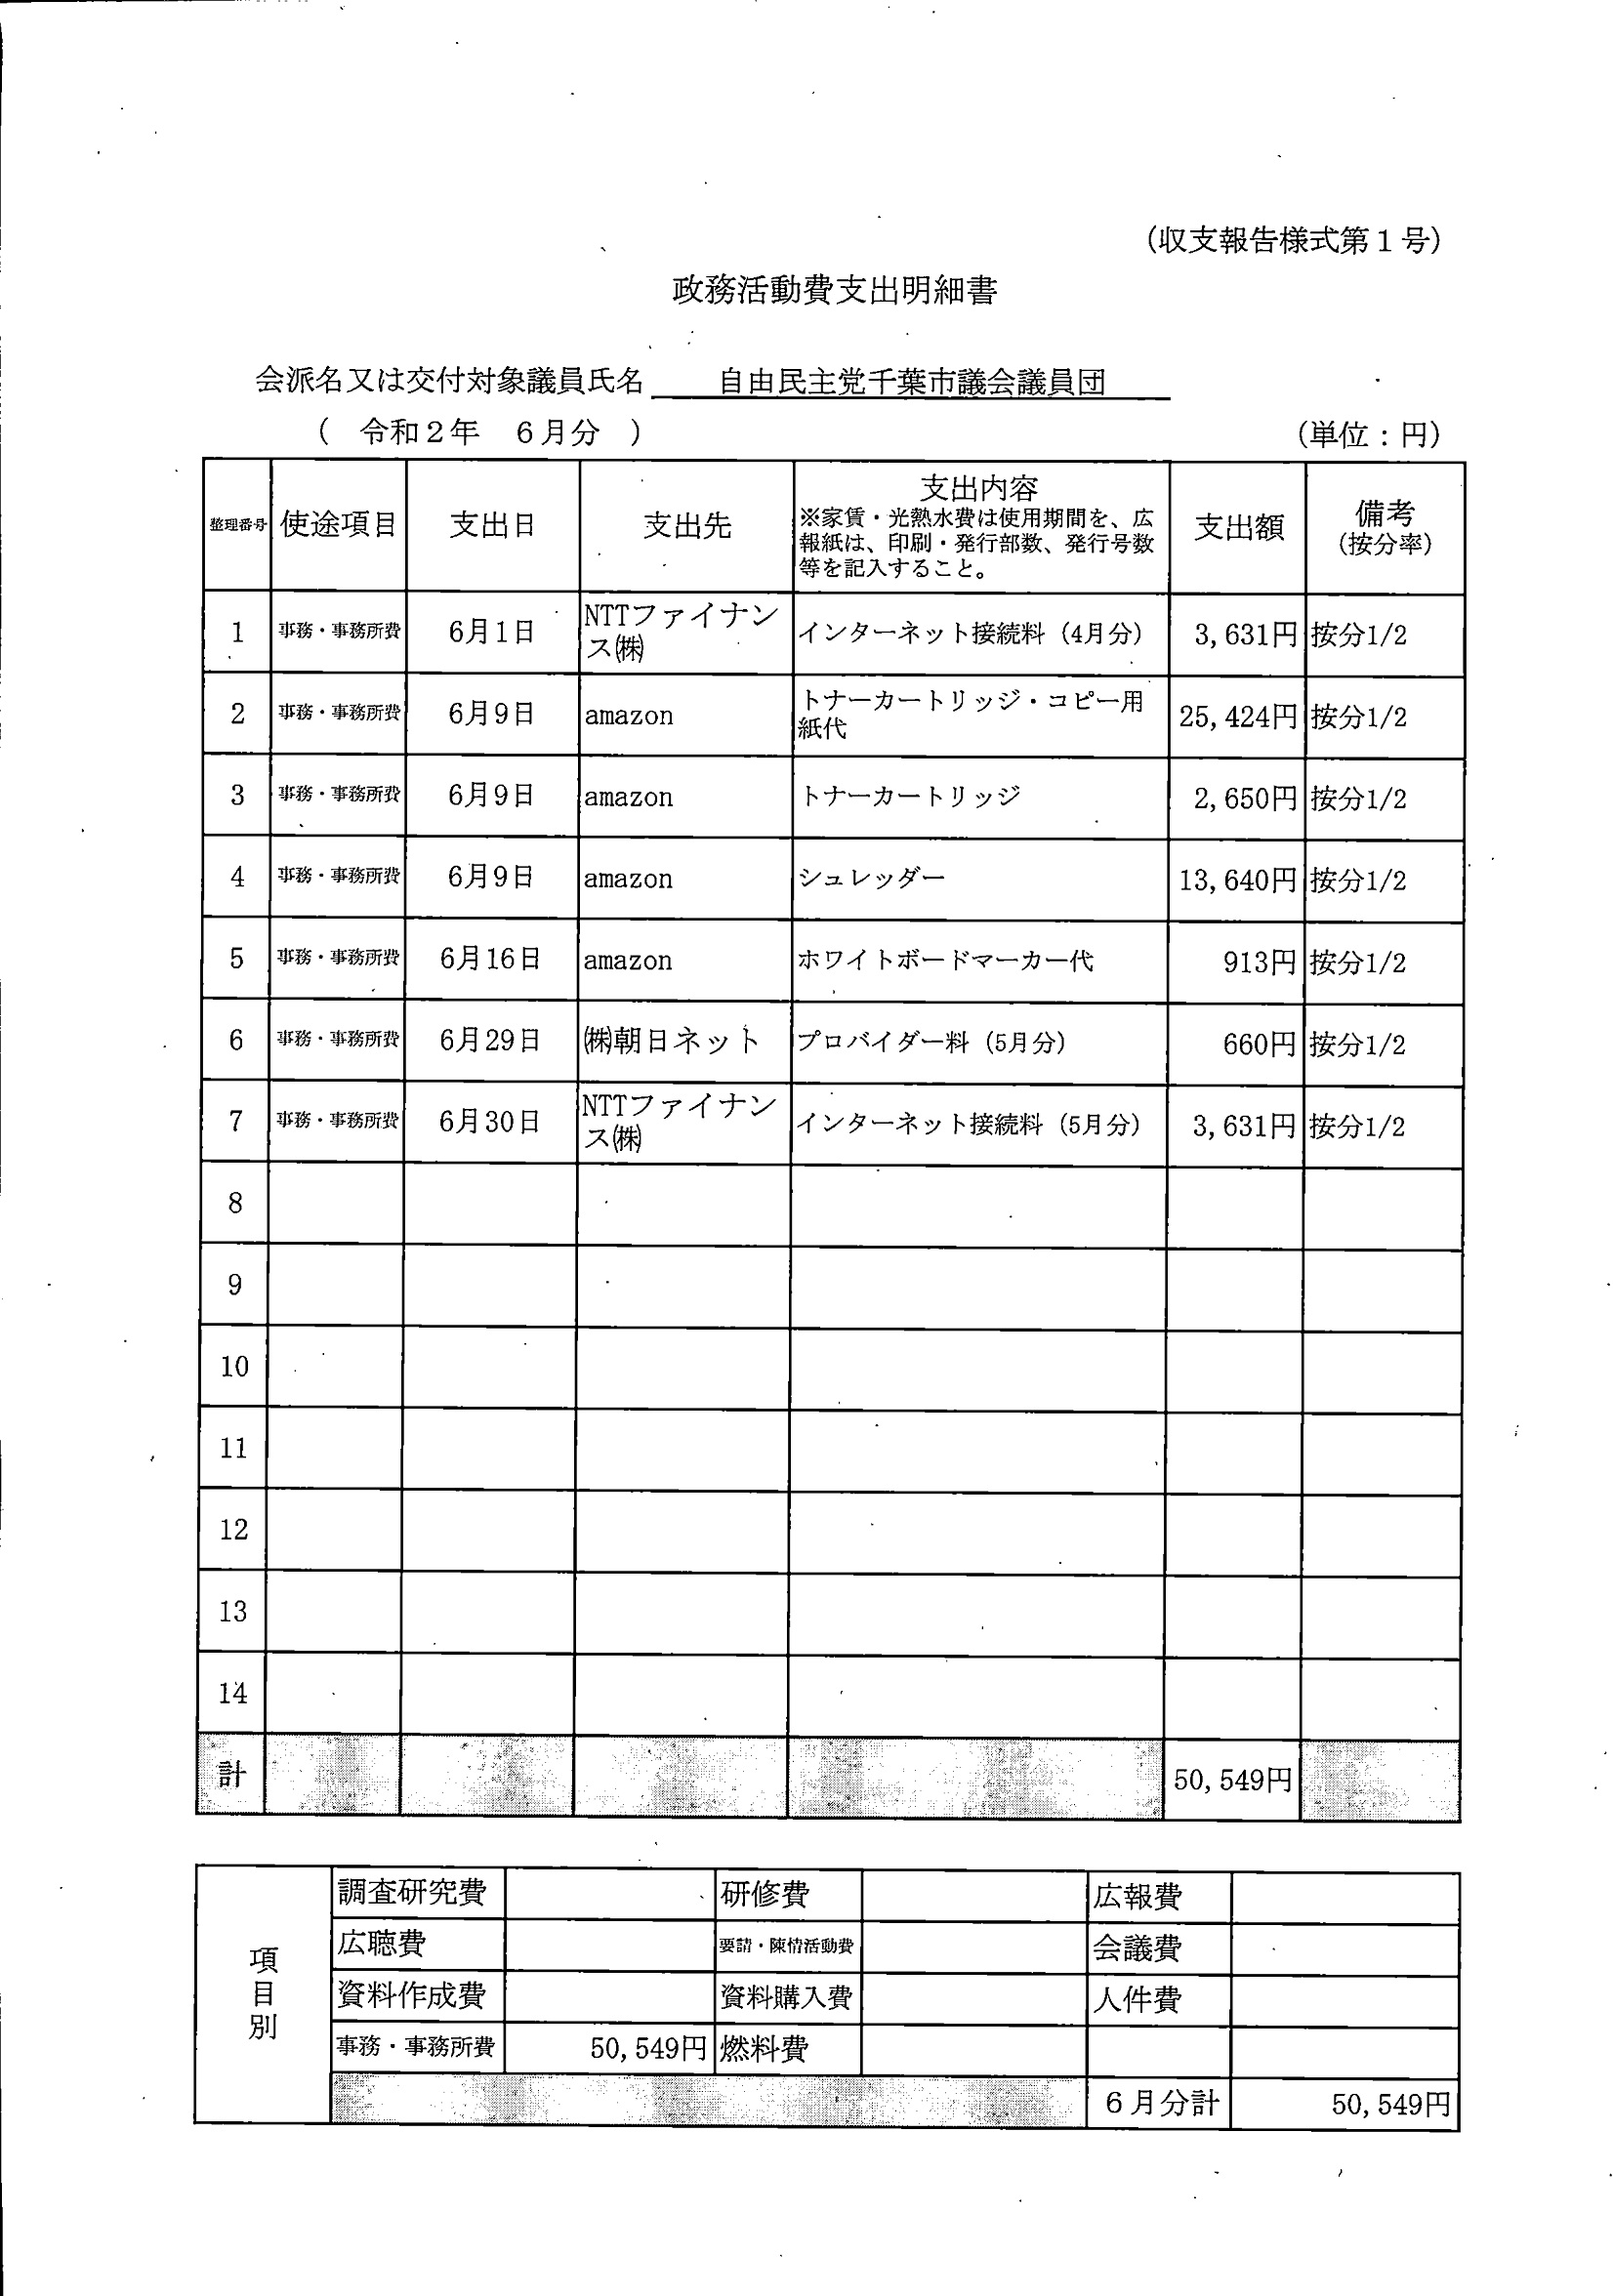 （収支報告様式第１号）
政務活動費支出明細書
会派名又は交付対象議員氏名　自由民主党千葉市議会議員団
（　令和２年　６月分　）
（単位：円）
整理番号 使途項目 支出日 支出先 支出内容 ※家賃・光熱水費は使用期間を、広報紙は、印刷・発行部数、発行号数等を記入すること。 支出額 備考（按分率）
1 事務・事務所費 6月1日 NTTファイナンス㈱ インターネット接続料（4月分） 3,631円 按分1/2
2 事務・事務所費 6月9日 amazon トナーカートリッジ・コピー用紙代 25,424円 按分1/2
3 事務・事務所費 6月9日 amazon トナーカートリッジ 2,650円 按分1/2
4 事務・事務所費 6月9日 amazon シュレッダー 13,640円 按分1/2
5 事務・事務所費 6月16日 amazon ホワイトボードマーカー代 913円 按分1/2
6 事務・事務所費 6月29日 ㈱朝日ネット プロバイダー料（5月分） 660円 按分1/2
7 事務・事務所費 6月30日 NTTファイナンス㈱ インターネット接続料（5月分） 3,631円 按分1/2
8
9
10
11
12
13
14
計 50,549円
項目別
調査研究費 研修費 広報費
広聴費 要請・陳情活動費 会議費
資料作成費 資料購入費 人件費
事務・事務所費 50,549円 燃料費
６月分計 50,549円